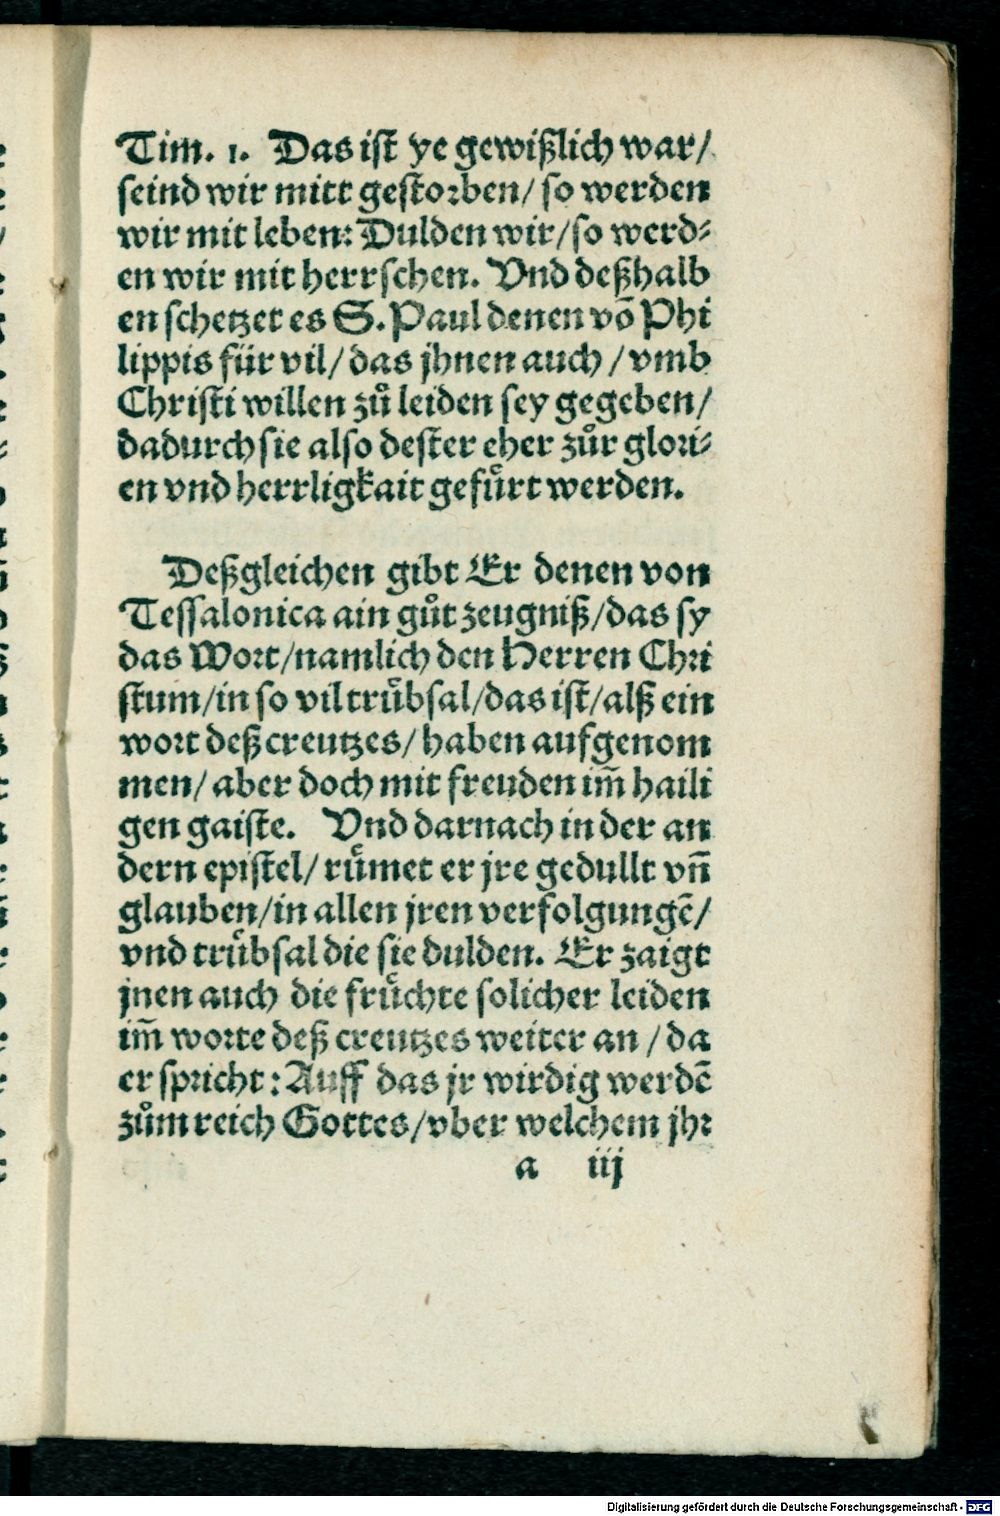 Tim. 1. Das ist ye gewißlich war/
seind wir mitt gestorben/ so werden
wir mit leben: Dulden wir/so werd-
en wir mit herrschen. Vnd deßhalb
en schetzet es S. Paul denen võ Phi
lippis für vil/ das jhnen auch / vmb
Christi willen zů leiden sey gegeben/
dadurch sie also dester eher zůr glori-
en vnd herrligkait gefůrt werden.
Deßgleichen gibt Er denen von
Tessalonica ain gůt zeugniß/das sy
das Wort/namlich den Herren Chri
stum/in so vil trůbsal/das ist/alß ein
wort deß creutzes/ haben aufgenom
men/ aber doch mit freuden im̃ haili
gen gaiste. Vnd darnach in der an
dern epistel/ růmet er jre gedullt vñ
glauben/in allen jren verfolgungẽ/
vnd trůbsal die sie dulden. Er zaigt
jnen auch die frůchte solicher leiden
im̃ worte deß creutzes weiter an / da
er spricht: Auff das jr wirdig werdẽ
zům reich Gottes/vber welchem jhr
a iij
Digitalisierung gefördert durch die Deutsche Forschungsgemeinschaft - DFG